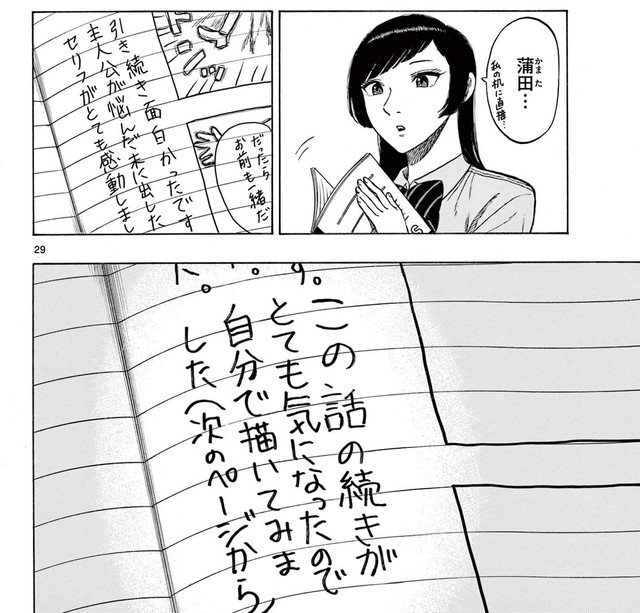 かまた
蒲田…
私の机に直接…
だったら
お前も一緒だ
引き続き面白かったです
主人公が悩んだ末に出した
セリフがとても感動しまし
29
す。
た。
この話の続きが
とても気になったので
自分で描いてみま
した(次のページから)